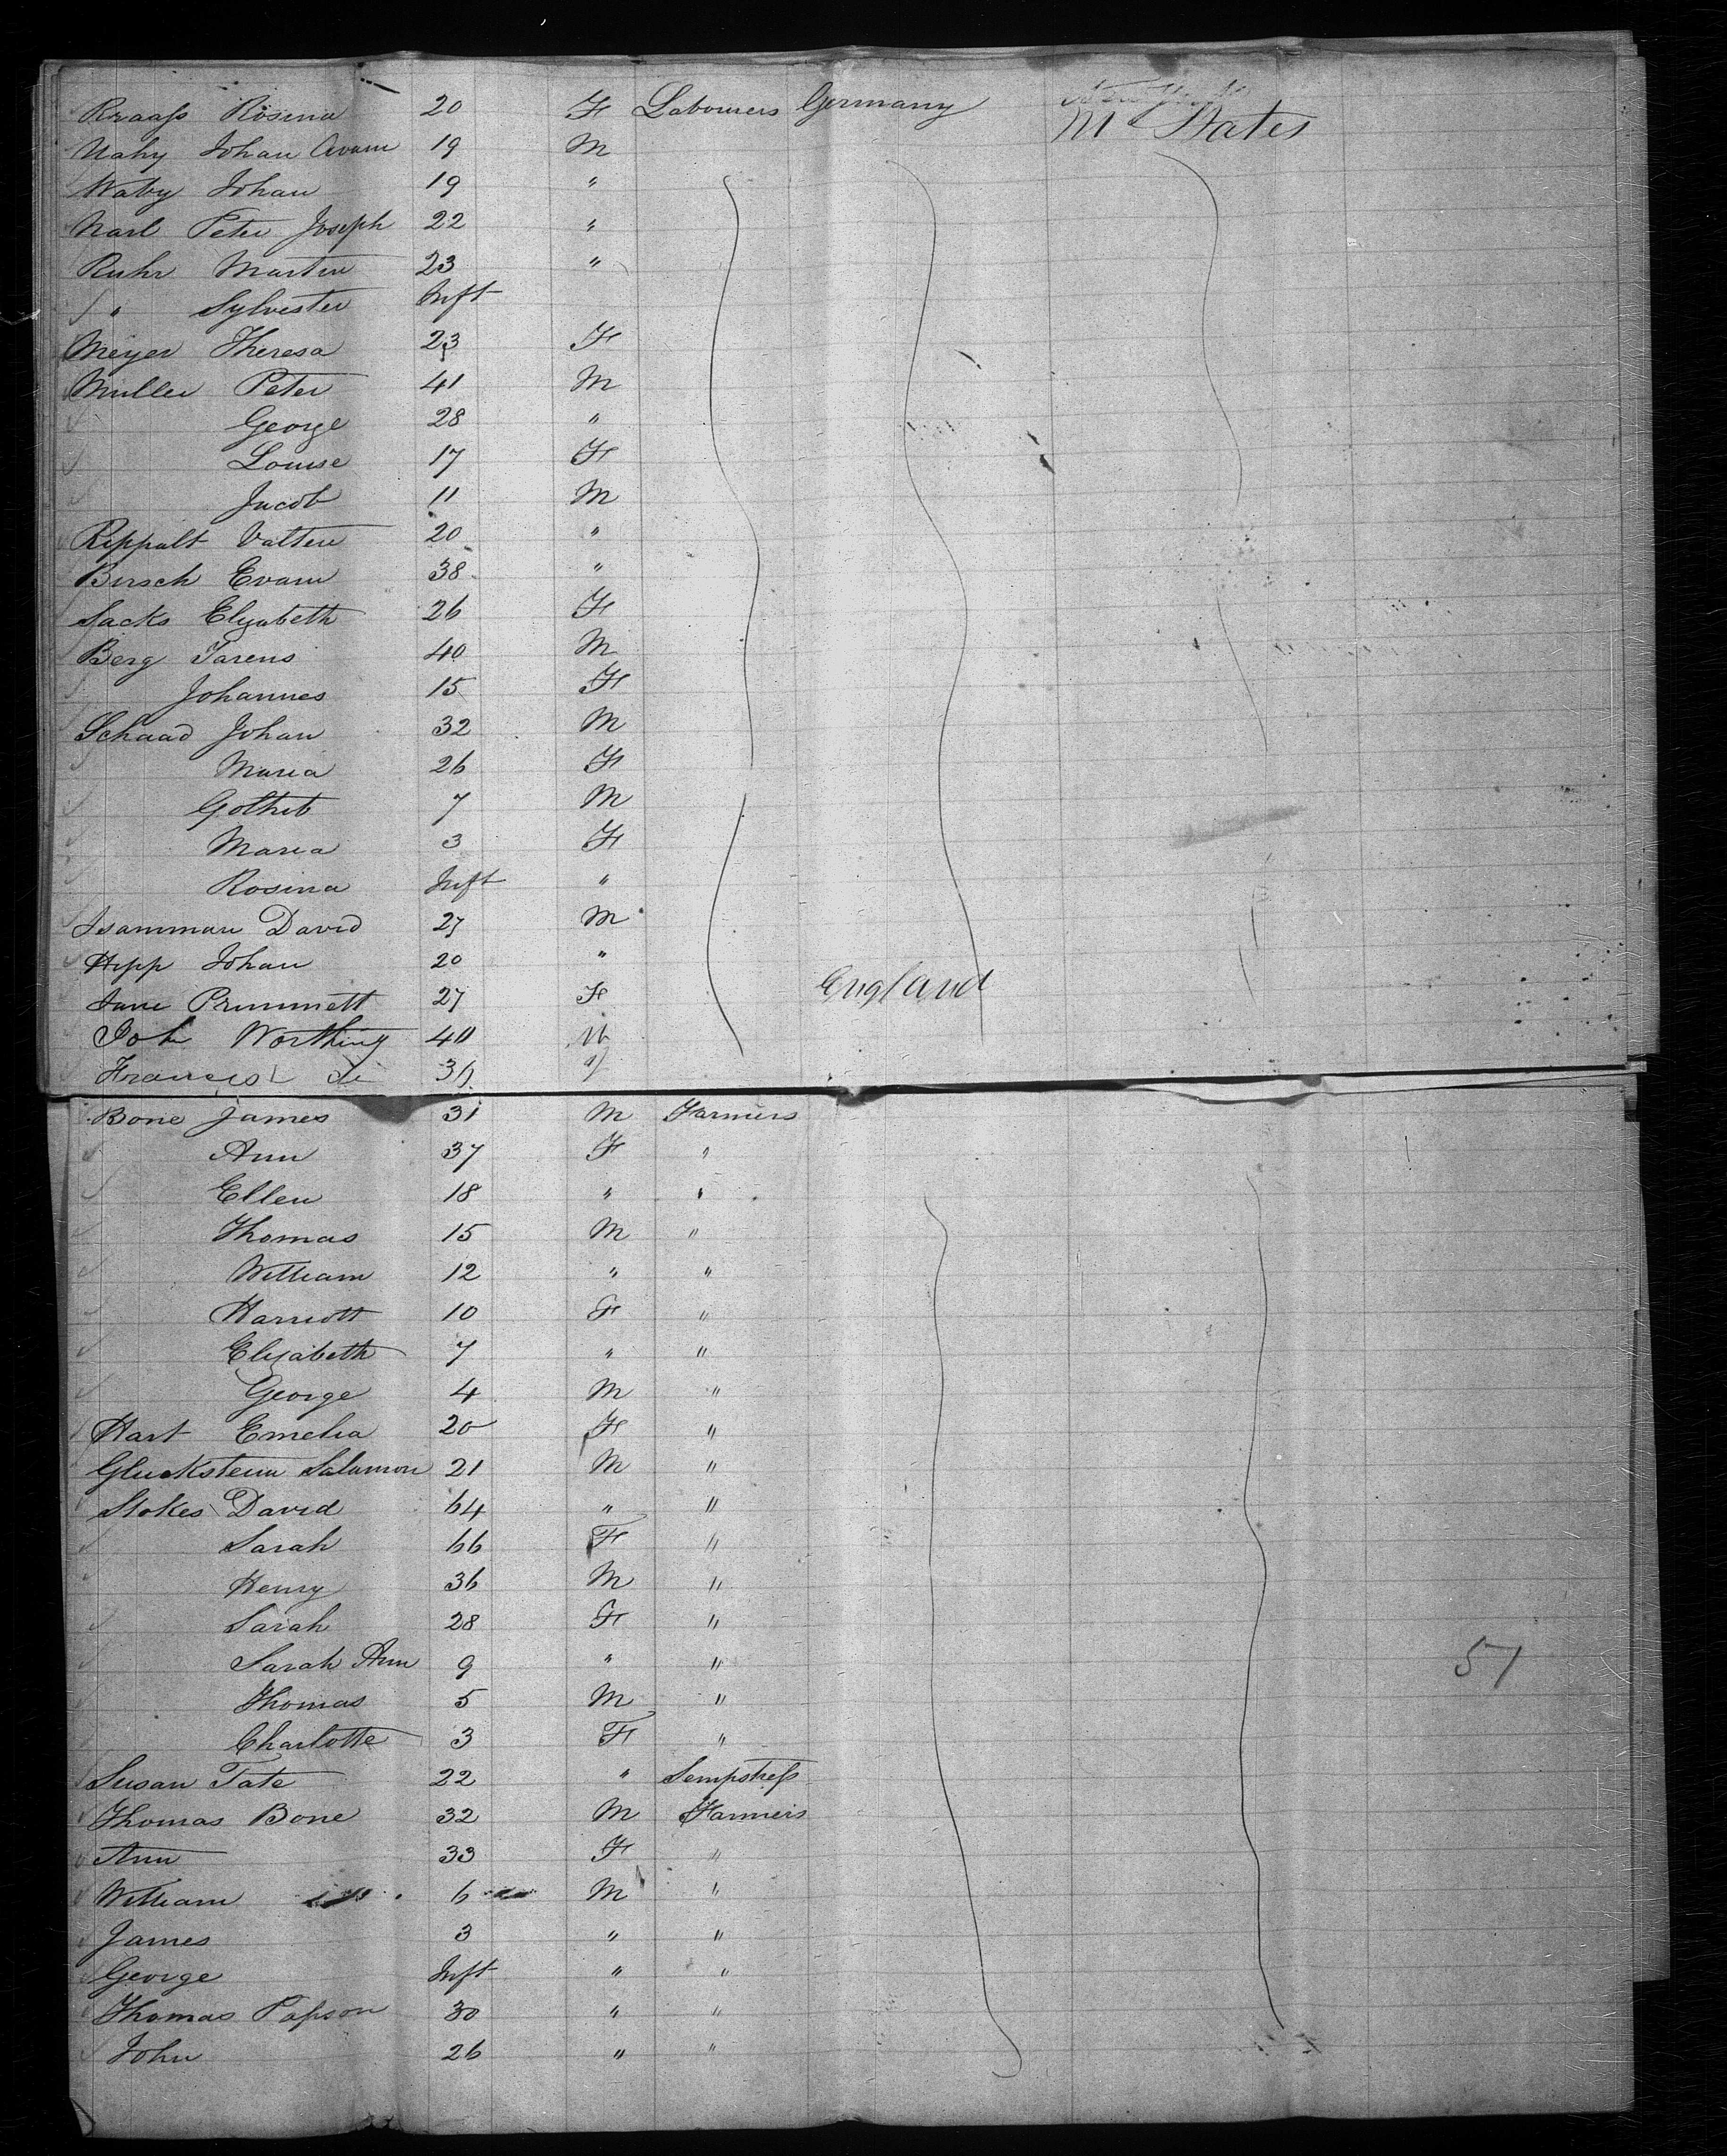 Kraass Rosina 20 F Labourers Germany
Nahy Johan Avam 19 M U States
Waby Johan 19 "
Narl Peter Joseph 22 "
Ruhr Martin 23 "
" Sylvester Inft
Meyer Theresa 23 F
Muller Peter 41 M
George 28 "
Louise 17 F
Jacob 11 M
Rippalt Valten 20 "
Birsch Evam 38 "
Sacks Elizabeth 26 F
Berg Jarens 40 M
Johannes 15 F
Schaad Johan 32 M
Maria 26 F
Gotheb 7 M
Maria 3 F
Rosina Inft "
Isamman David 27 M
Hipp Johan 20 "
Jane Prummett 27 F England
John Worthing 40 M
Francis do 36 "
Bone James 31 M Farmers
Ann 37 F "
Ellen 18 " "
Thomas 15 M "
William 12 " "
Harriott 10 F "
Elizabeth 7 " "
George 4 M "
Hart Emelia 20 F "
Gluckstein Salamon 21 M "
Stokes David 64 " "
Sarah 66 F "
Henry 36 M "
Sarah 28 F "
Sarah Ann 9 " "
57
Thomas 5 M "
Charlotte 3 F "
Susan Tate 22 " Sempstress
Thomas Bone 32 M Farmers
Ann 33 F "
William 6 M "
James 3 " "
George Inft " "
Thomas Papson 30 " "
John 26 " "